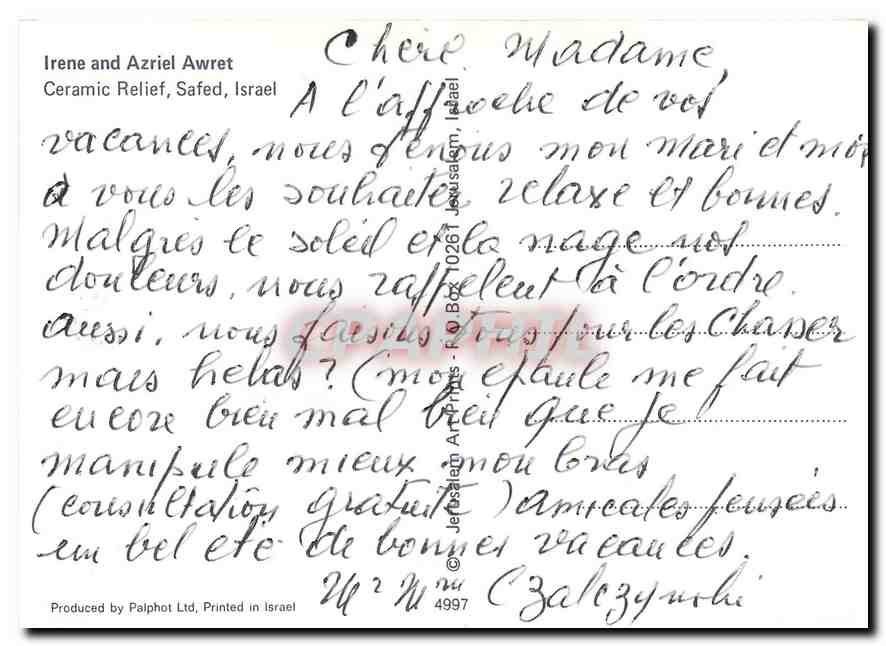 Irene and Azriel Awret
Ceramic Relief, Safed, Israel
Chère Madame,
A l'approche de vos
vacances, nous tenons mon mari et moi
à vous les souhaiter relaxe et bonnes.
Malgrés le soleil et la nage nos
douleurs, nous rappelent à l'ordre.
aussi, nous faisons tous pour les chasser
mais helas? (mon epaule me fait
encore bien mal bien que je
manipule mieux mon bras
(consultation gratuite) amicales pensées
un bel eté de bonnes vacances.
Mr Mme Czalczynski
© Jerusalem Art Prints - P.O.Box 10261 Jerusalem, Israel
4997
Produced by Palphot Ltd, Printed in Israel